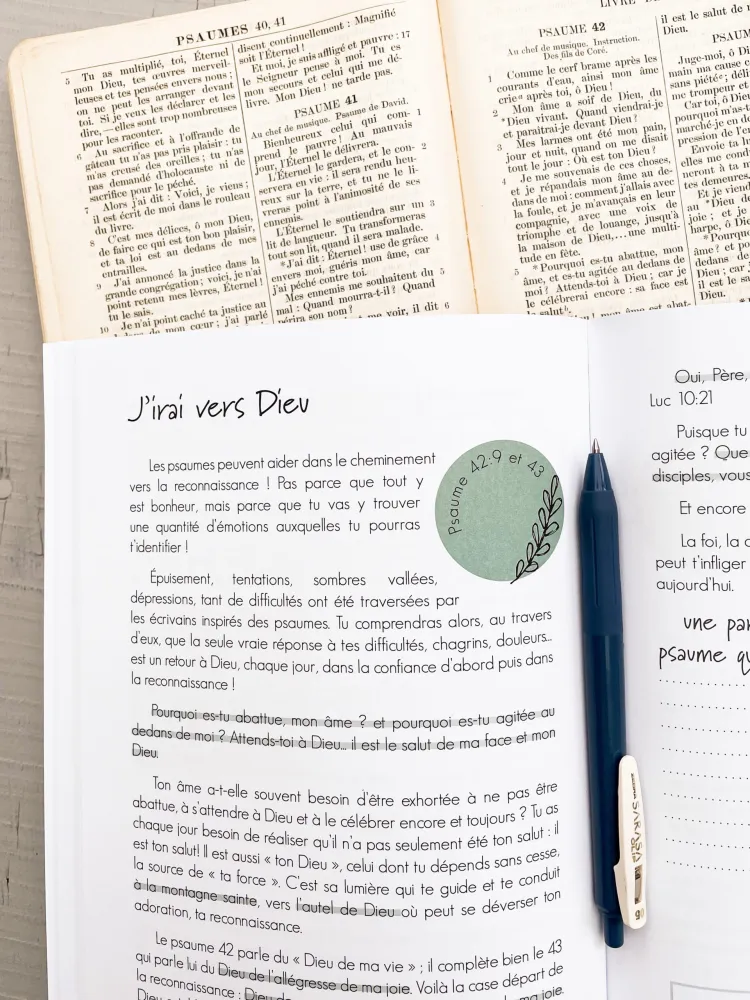 PSAUMES 40, 41
5 Tu as multiplié, toi, Éternel
mon Dieu, tes œuvres merveil-
leuses et tes pensées envers nous ;
on ne peut les arranger devant
toi. Si je veux les déclarer et les
dire, — elles sont trop nombreuses
pour les raconter.
6 Au sacrifice et à l'offrande de
gâteau tu n'as pas pris plaisir : tu
m'as creusé des oreilles ; tu n'as
pas demandé d'holocauste ni de
sacrifice pour le péché.
7 Alors j'ai dit : Voici, je viens ;
il est écrit de moi dans le rouleau
du livre.
8 C'est mes délices, ô mon Dieu,
de faire ce qui est ton bon plaisir,
et ta loi est au dedans de mes
entrailles.
9 J'ai annoncé la justice dans la
grande congrégation ; voici, je n'ai
point retenu mes lèvres, Éternel !
tu le sais.
10 Je n'ai point caché ta justice au
mon cœur ; j'ai parlé
disent continuellement : Magnifié
soit l'Éternel !
Et moi, je suis affligé et pauvre : 17
le Seigneur pense à moi. Tu es
mon secours et celui qui me dé-
livre. Mon Dieu ! ne tarde pas.
PSAUME 41
Au chef de musique. Psaume de David.
Bienheureux celui qui com- 1
prend le pauvre ! Au mauvais
jour, l'Éternel le délivrera.
L'Éternel le gardera, et le con- 2
servera en vie : il sera rendu heu-
reux sur la terre, et tu ne le li-
vreras point à l'animosité de ses
ennemis.
L'Éternel le soutiendra sur un 3
lit de langueur. Tu transformeras
tout son lit, quand il sera malade.
*J'ai dit : Éternel ! use de grâce 4
envers moi, guéris mon âme, car
j'ai péché contre toi.
Mes ennemis me souhaitent du 5
mal : Quand mourra-t-il ? Quand
périra son nom ?
me voir, il dit 6
PSAUME 42
Au chef de musique. Instruction.
Des fils de Coré.
1 Comme le cerf brame après les
courants d'eau, ainsi mon âme
crie après toi, ô Dieu !
2 Mon âme a soif de Dieu, du
*Dieu vivant. Quand viendrai-je
et paraîtrai-je devant Dieu ?
3 Mes larmes ont été mon pain,
jour et nuit, quand on me disait
tout le jour : Où est ton Dieu ?
4 Je me souvenais de ces choses,
et je répandais mon âme au de-
dans de moi : comment j'allais avec
la foule, et je m'avançais en leur
compagnie, avec une voix de
triomphe et de louange, jusqu'à
la maison de Dieu,... une multi-
tude en fête.
5 *Pourquoi es-tu abattue, mon
âme, et es-tu agitée au dedans de
moi ? Attends-toi à Dieu ; car je
le célébrerai encore : sa face est
le salut.
il est le salut de
Dieu.
PSAUM
Juge-moi, ô Di
main ma cause c
sans piété ; déli
me trompeur et
Car toi, ô Dieu
pourquoi m'as-t
marché-je en do
pression de l'e
Envoie ta lu
elles me condu
neront à ta m
tes demeures,
Et je vien
au *Dieu de
joie ; et je
harpe, ô Di
*Pourquo
âme ? et po
dedans de
Dieu ; car
il est le sa
Dieu.
J'irai vers Dieu
Les psaumes peuvent aider dans le cheminement
vers la reconnaissance ! Pas parce que tout y
est bonheur, mais parce que tu vas y trouver
une quantité d'émotions auxquelles tu pourras
t'identifier !
Psaume 42:9 et 43
Épuisement, tentations, sombres vallées,
dépressions, tant de difficultés ont été traversées par
les écrivains inspirés des psaumes. Tu comprendras alors, au travers
d'eux, que la seule vraie réponse à tes difficultés, chagrins, douleurs...
est un retour à Dieu, chaque jour, dans la confiance d'abord puis dans
la reconnaissance !
Pourquoi es-tu abattue, mon âme ? et pourquoi es-tu agitée au
dedans de moi ? Attends-toi à Dieu... il est le salut de ma face et mon
Dieu.
Ton âme a-t-elle souvent besoin d'être exhortée à ne pas être
abattue, à s'attendre à Dieu et à le célébrer encore et toujours ? Tu as
chaque jour besoin de réaliser qu'il n'a pas seulement été ton salut : il
est ton salut! Il est aussi « ton Dieu », celui dont tu dépends sans cesse,
la source de « ta force ». C'est sa lumière qui te guide et te conduit
à la montagne sainte, vers l'autel de Dieu où peut se déverser ton
adoration, ta reconnaissance.
Le psaume 42 parle du « Dieu de ma vie » ; il complète bien le 43
qui parle lui du Dieu de l'allégresse de ma joie. Voilà la case départ de
la reconnaissance : Dieu de
ma joie.
Oui, Père,
Luc 10:21
Puisque tu
agitée ? Que
disciples, vous
Et encore
La foi, la c
peut t'infliger
aujourd'hui.
une par
psaume qu
SARASA